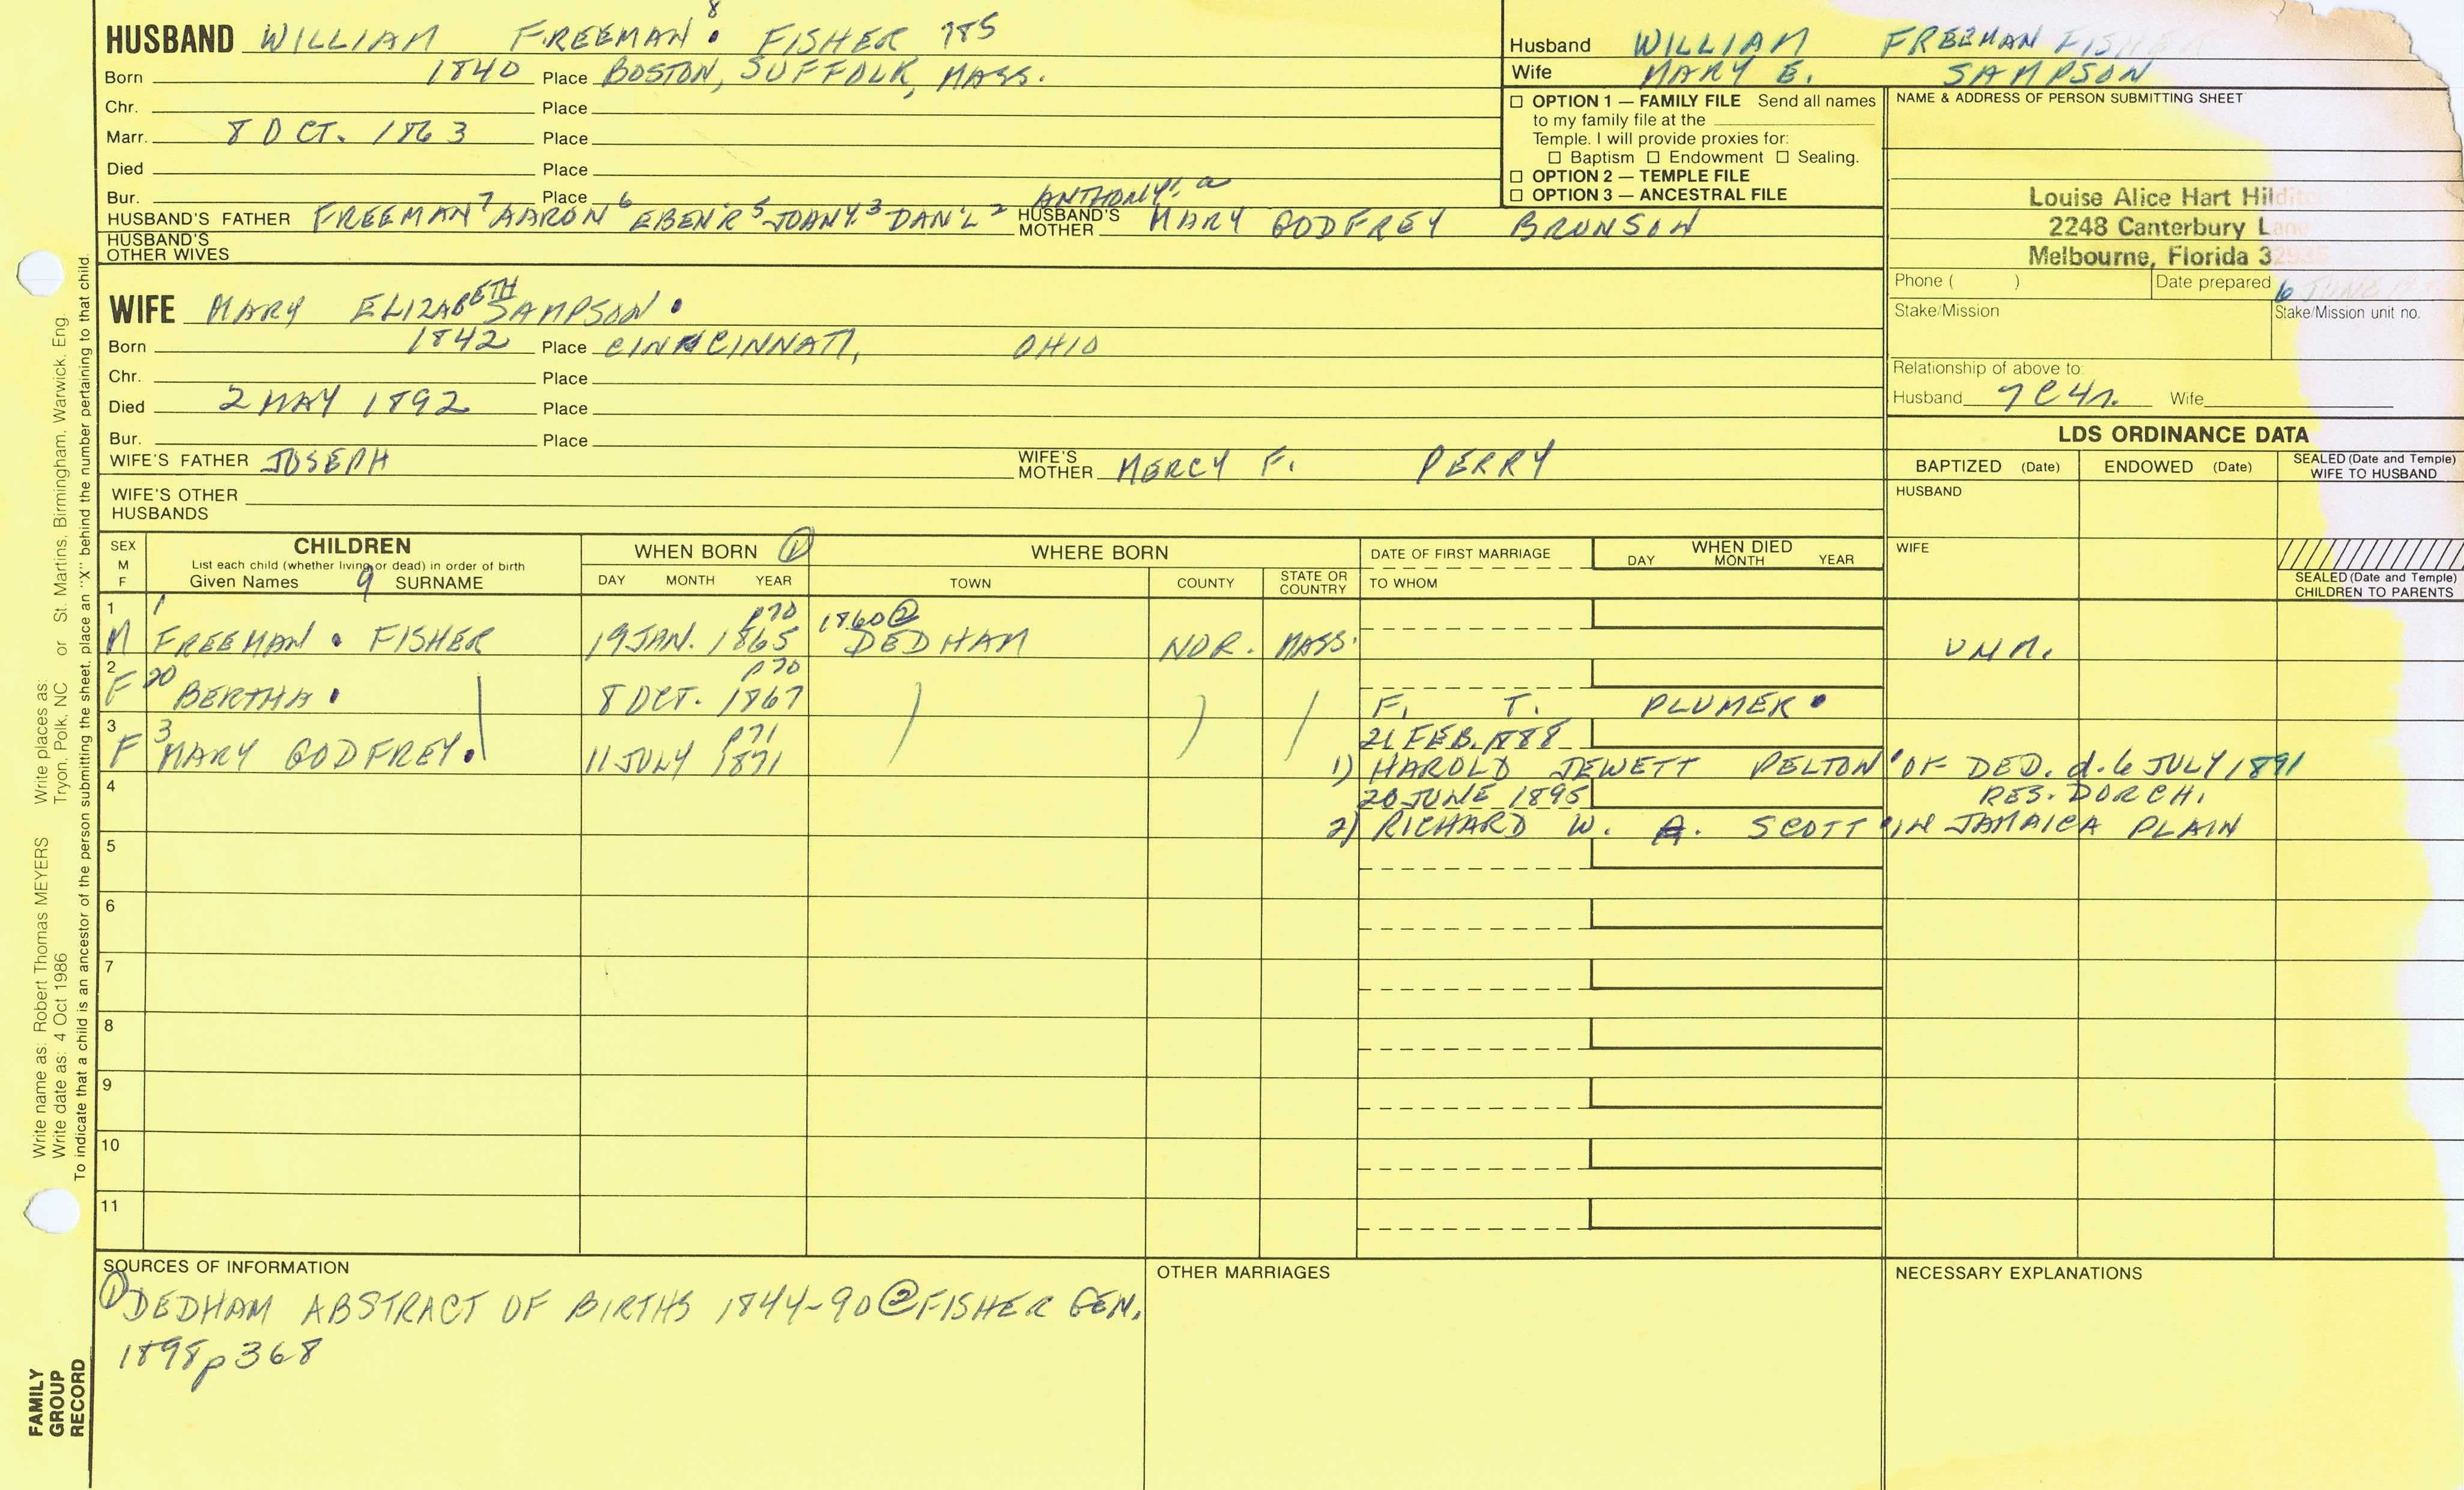 8
HUSBAND WILLIAM FREEMAN • FISHER 785
Born 1840 Place BOSTON, SUFFOLK, MASS.
Chr. Place
Marr. 8 OCT. 1863 Place
Died Place
Bur. Place ANTHONY1, a
HUSBAND'S FATHER FREEMAN7 AARON6 EBEN'R5 JOANY.3 DAN'L2 HUSBAND'S MOTHER MARY GODFREY BRUNSON
HUSBAND'S OTHER WIVES
WIFE MARY ELIZABETH SAMPSON •
Born 1842 Place CINCINNATI, OHIO
Chr. Place
Died 2 MAY 1892 Place
Bur. Place
WIFE'S FATHER JOSEPH WIFE'S MOTHER MERCY F. PERRY
WIFE'S OTHER HUSBANDS
Husband WILLIAM FREEMAN FISHE
Wife MARY E. SAMPSON
☐ OPTION 1 — FAMILY FILE Send all names
to my family file at the
Temple. I will provide proxies for:
☐ Baptism ☐ Endowment ☐ Sealing.
☐ OPTION 2 — TEMPLE FILE
☐ OPTION 3 — ANCESTRAL FILE
NAME & ADDRESS OF PERSON SUBMITTING SHEET
Louise Alice Hart Hilditc
2248 Canterbury Lane
Melbourne, Florida 32935
Phone ( ) Date prepared 6 JUNE
Stake/Mission Stake/Mission unit no.
Relationship of above to:
Husband 7C4r. Wife
LDS ORDINANCE DATA
BAPTIZED (Date) ENDOWED (Date) SEALED (Date and Temple) WIFE TO HUSBAND
HUSBAND
WIFE
SEALED (Date and Temple) CHILDREN TO PARENTS
SEX M F CHILDREN WHEN BORN ① WHERE BORN DATE OF FIRST MARRIAGE WHEN DIED
List each child (whether living or dead) in order of birth
Given Names 9 SURNAME DAY MONTH YEAR TOWN COUNTY STATE OR COUNTRY TO WHOM DAY MONTH YEAR
1 1 p70 1860②
M FREEMAN • FISHER 19 JAN. 1865 DEDHAM NOR. MASS. UNM.
2 p70
F 20 BERTHA • 8 OCT. 1867 F. T. PLUMER •
3 3 p71 21 FEB. 1888
F MARY GODFREY • 11 JULY 1871 1) HAROLD JEWETT PELTON • OF DED. d. 6 JULY 1891
4 20 JUNE 1895 RES. DORCH.
2) RICHARD W. A. SCOTT • IN JAMAICA PLAIN
5
6
7
8
9
10
11
SOURCES OF INFORMATION
① DEDHAM ABSTRACT OF BIRTHS 1844-90 ② FISHER GEN.
1898 p 368
OTHER MARRIAGES
NECESSARY EXPLANATIONS
Write name as: Robert Thomas MEYERS Write places as: St. Martins, Birmingham, Warwick, Eng.
Write date as: 4 Oct 1986 Tryon, Polk, NC or
To indicate that a child is an ancestor of the person submitting the sheet, place an "X" behind the number pertaining to that child.
FAMILY
GROUP
RECORD